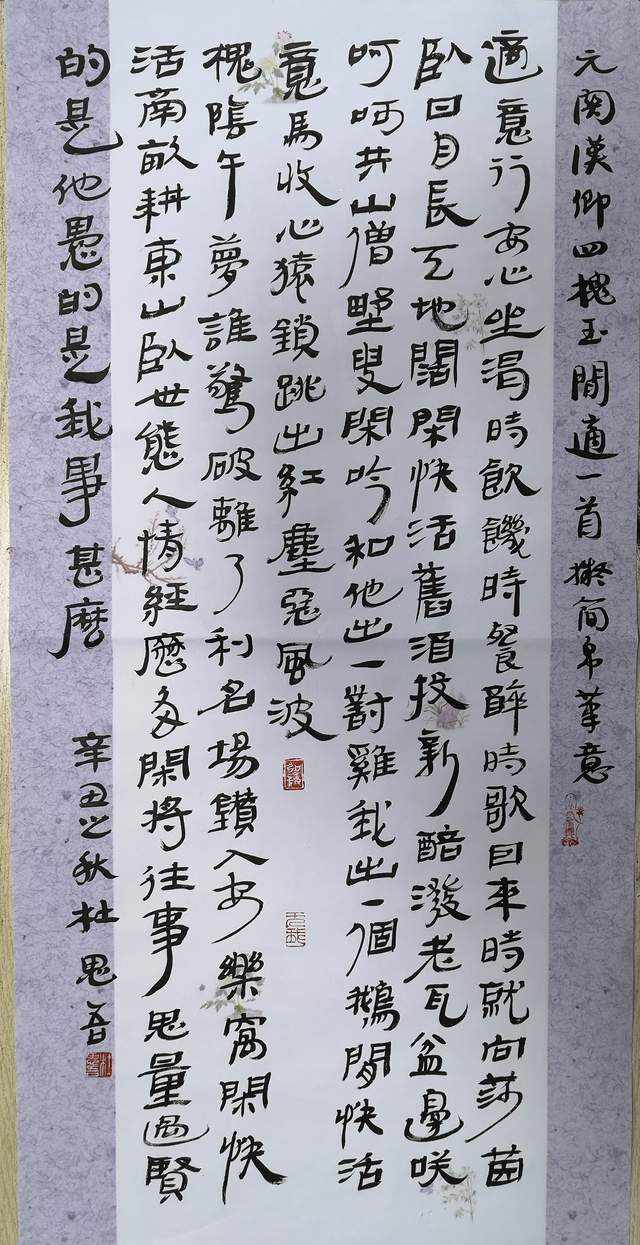 元関漢卿四槐玉閒適一首擬简帛筆意
適意行安心坐渴時飲饑時餐醉時歌困来時就向莎茵
臥日月長天地闊閑快活舊酒投新醅潑老瓦盆邊咲
呵呵共山僧野叟閑吟和他出一對雞我出一個鵝閒快活
意馬收心猿鎖跳出紅塵惡風波
槐陰午夢誰驚破離了利名場鑽入安樂窩閑快
活南畝耕東山臥世態人情經歷多閑將往事思量過賢
的是他愚的是我爭甚麼
辛丑之秋杜思吾